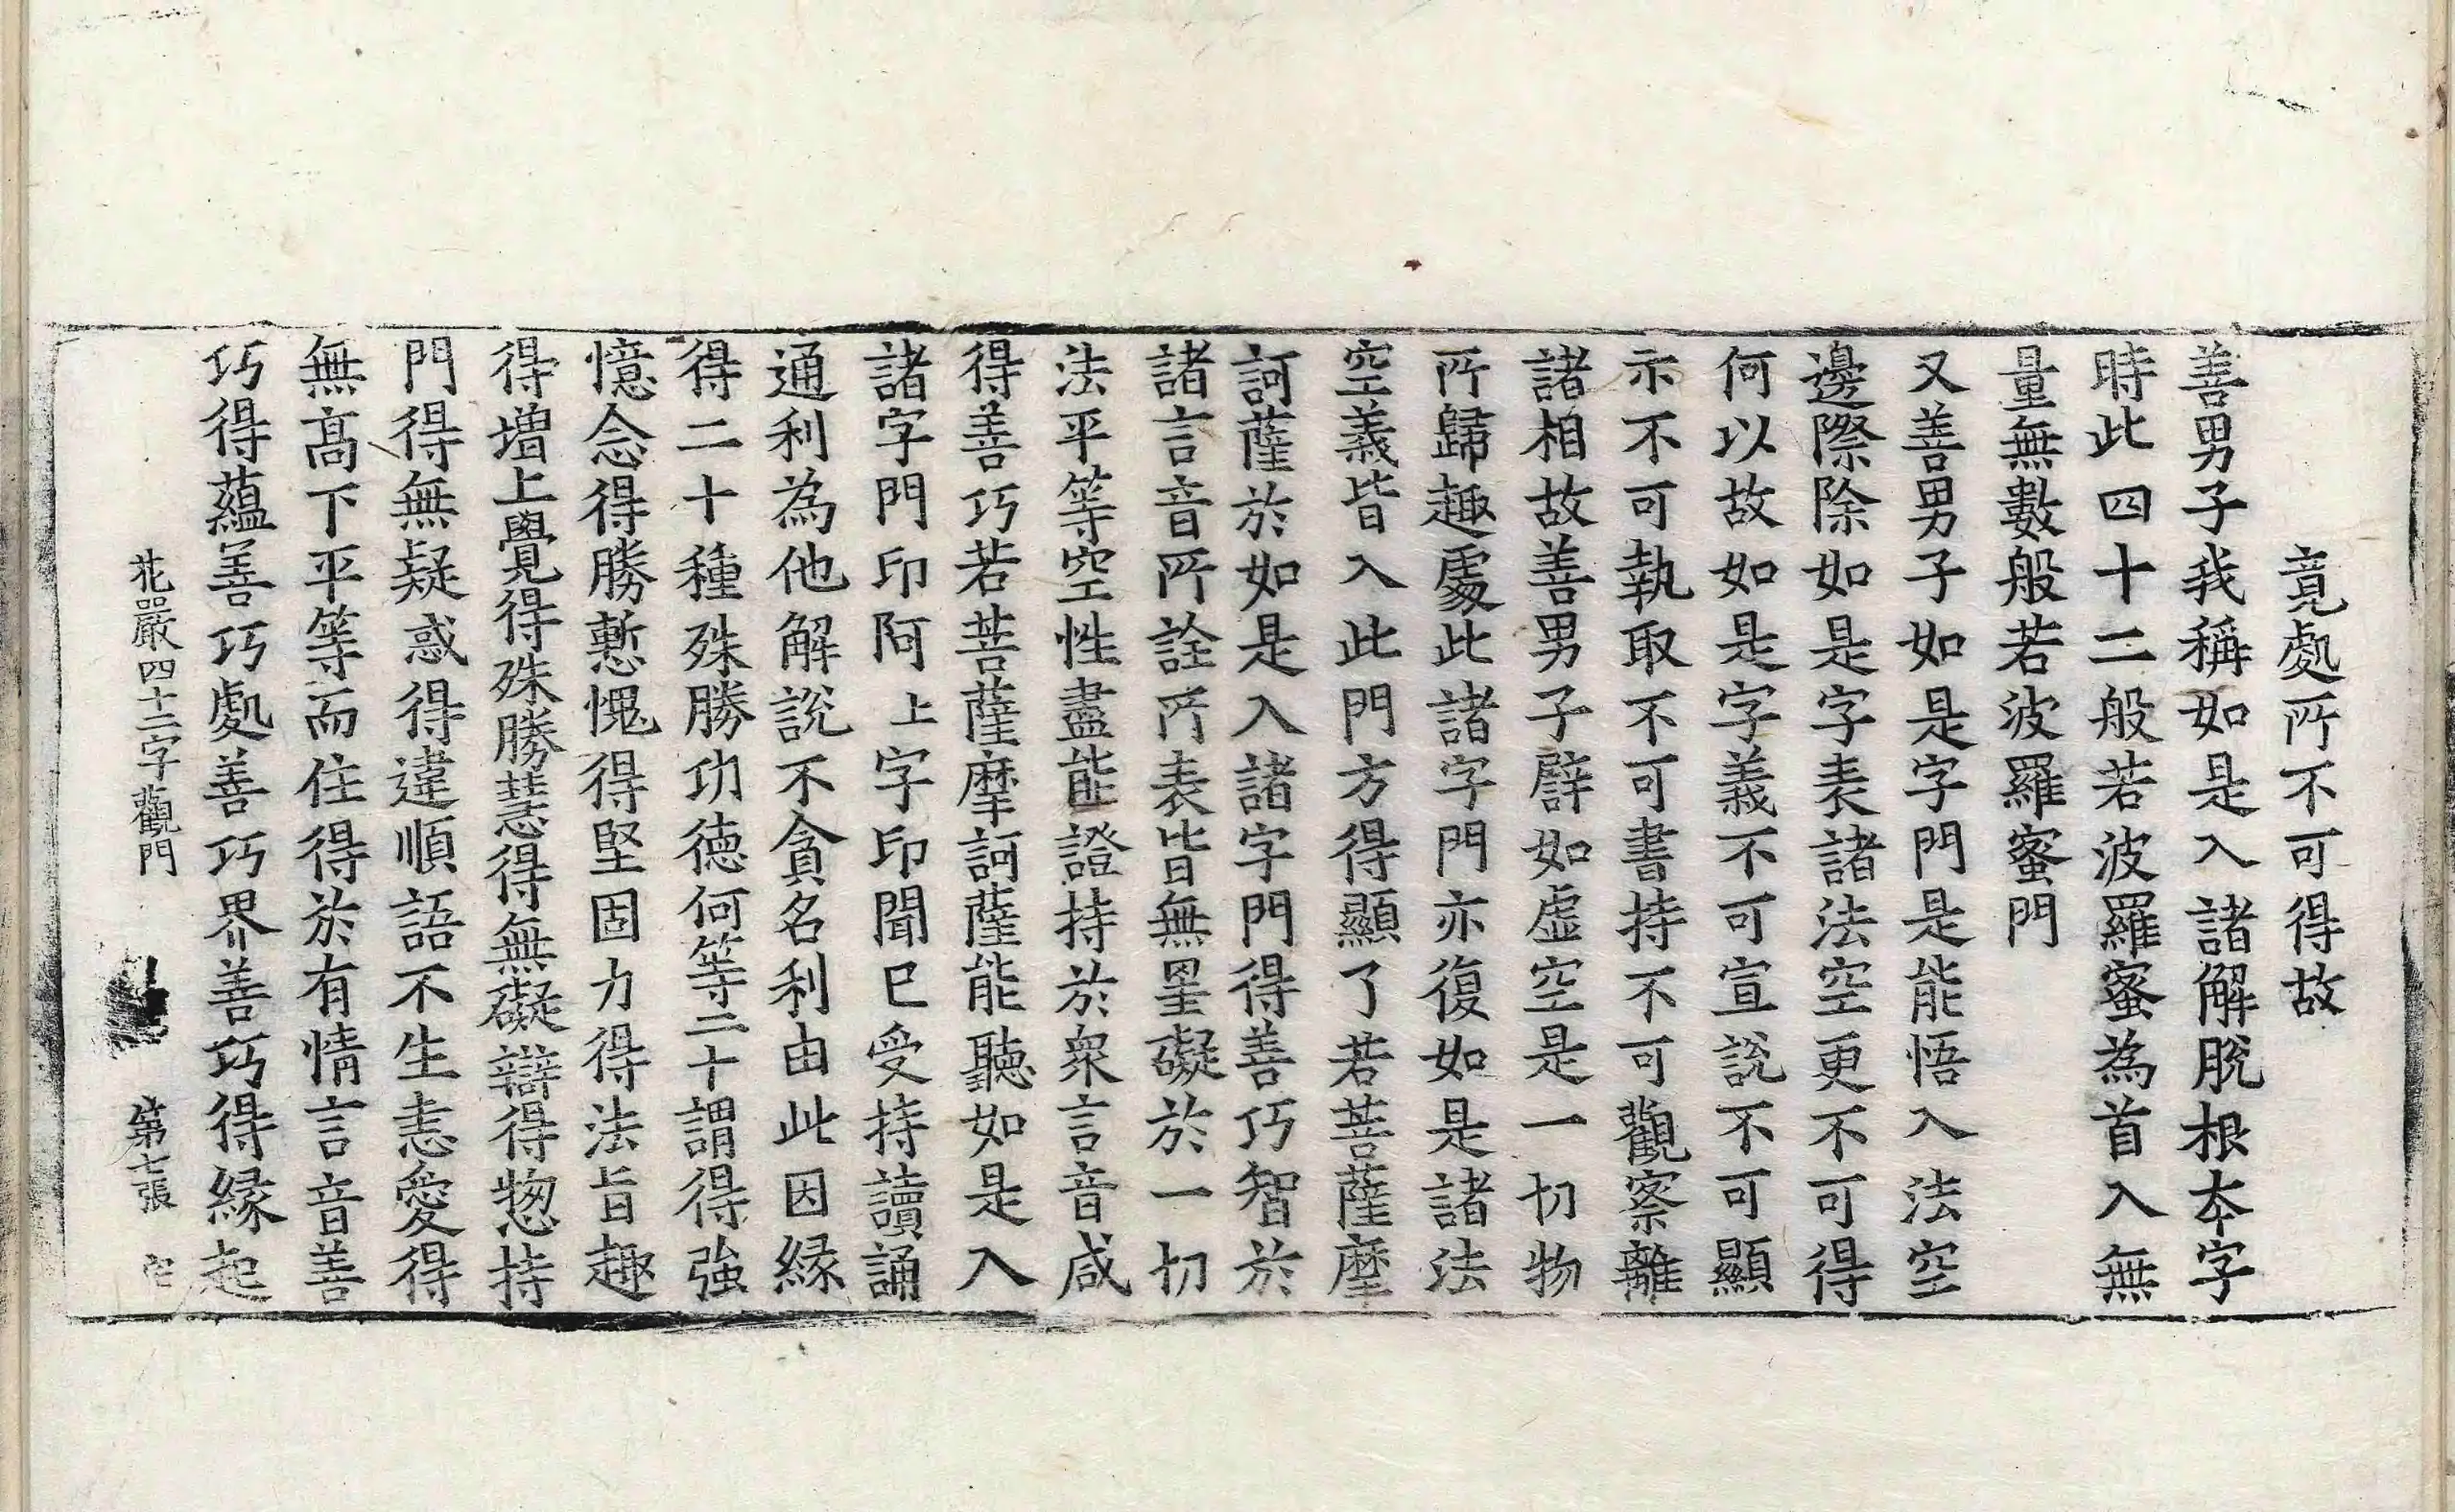 竟處所不可得故
善男子我稱如是入諸解脫根本字
時此四十二般若波羅蜜為首入無
量無數般若波羅蜜門
又善男子如是字門是能悟入法空
邊際除如是字表諸法空更不可得
何以故如是字義不可宣説不可顯
示不可執取不可書持不可觀察離
諸相故善男子譬如虛空是一切物
所歸趣處此諸字門亦復如是諸法
空義皆入此門方得顯了若菩薩摩
訶薩於如是入諸字門得善巧智於
諸言音所詮所表皆無罣礙於一切
法平等空性盡能證持於衆言音咸
得善巧若菩薩摩訶薩能聽如是入
諸字門印阿上字印聞已受持讀誦
通利為他解說不貪名利由此因緣
得二十種殊勝功德何等二十謂得強
憶念得勝慙愧得堅固力得法旨趣
得增上覺得殊勝慧得無礙辯得惣持
門得無疑惑得違順語不生恚愛得
無髙下平等而住得於有情言音善
巧得蘊善巧處善巧界善巧得緣起
花嚴四十二字觀門 第七張